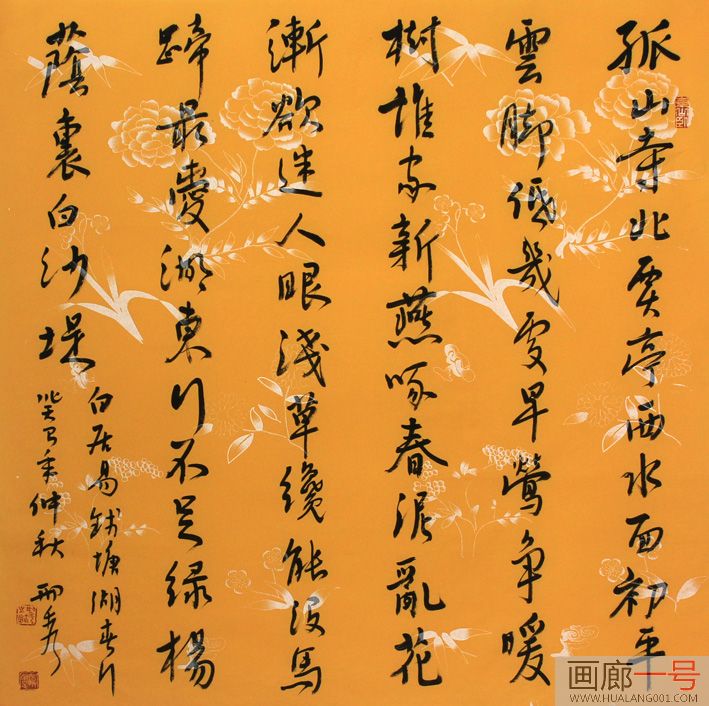 孤山寺北賈亭西水面初平
雲脚低幾處早鶯争暖
樹誰家新燕啄春泥亂花
漸欲迷人眼淺草纔能没馬
蹄最愛湖東行不足緑楊
蔭裏白沙堤
白居易錢塘湖春行
癸巳年仲秋
画廊一号
WWW.HUALANG001.COM